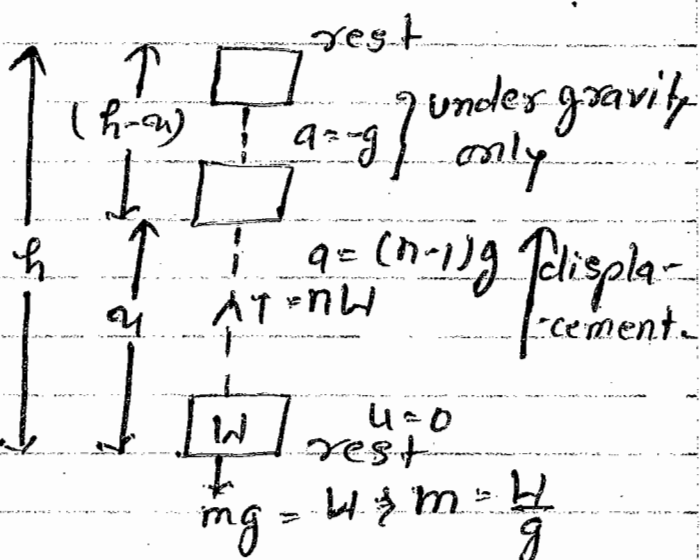 rest
(h-x)
a=-g } under gravity
only
h
a = (n-1)g
displa-
T = nW
x
-cement.
W
u=0
rest
mg = W ; m = W/g